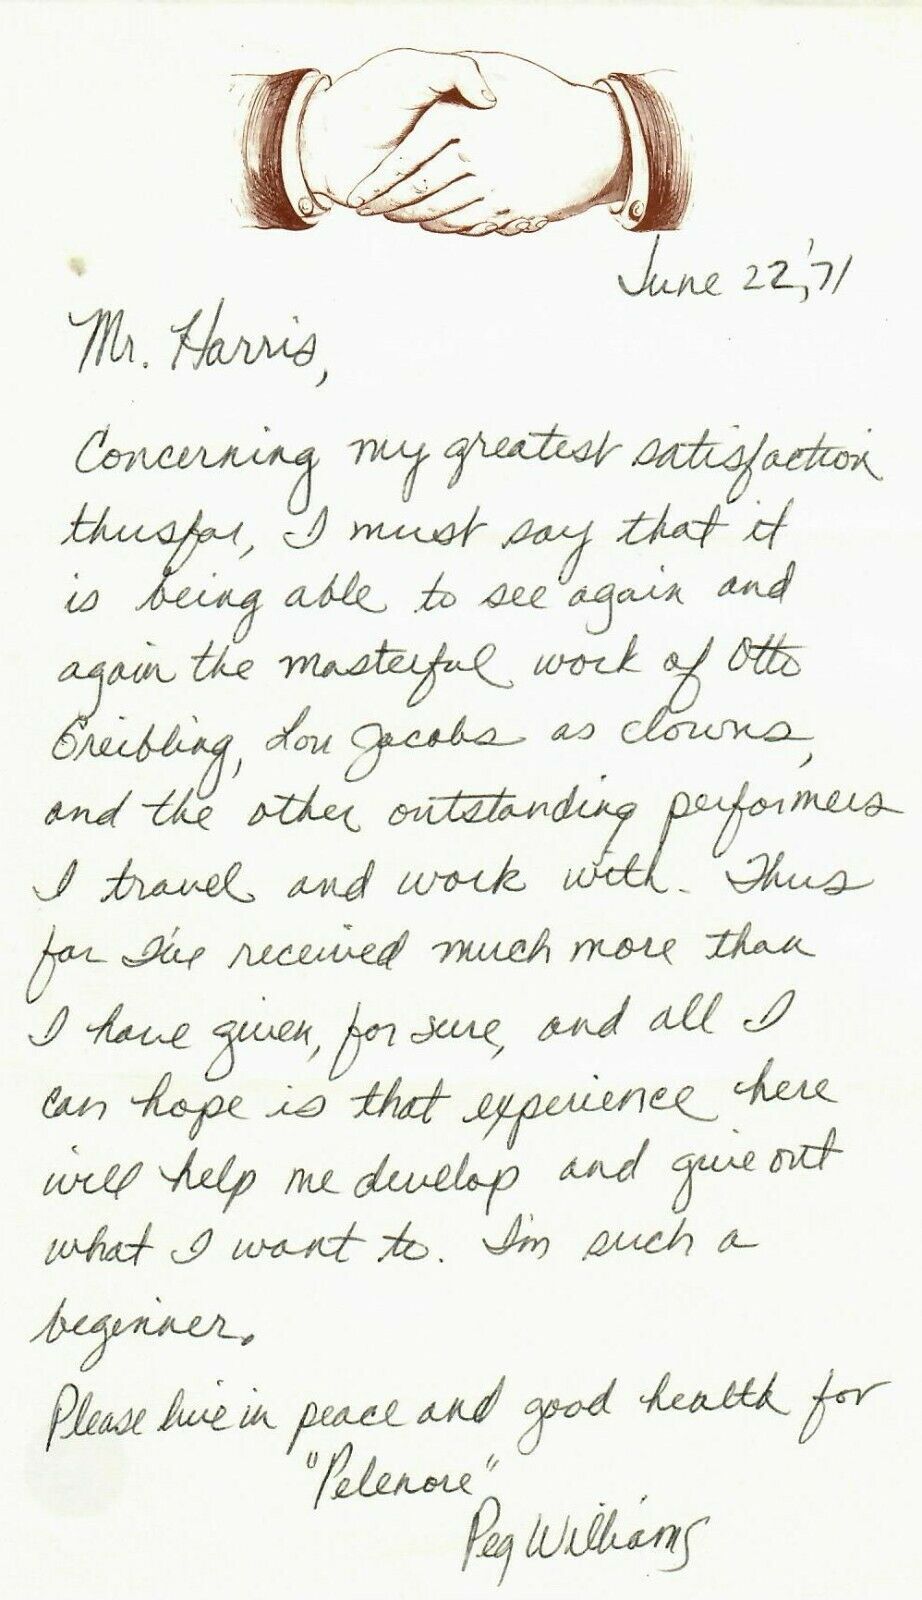 June 22, '71
Mr. Harris,
Concerning my greatest satisfaction
thusfar, I must say that it
is being able to see again and
again the masterful work of Otto
Greibling, Lou Jacobs as clowns,
and the other outstanding performers
I travel and work with. Thus
far I've received much more than
I have given, for sure, and all I
can hope is that experience here
will help me develop and give out
what I want to. I'm such a
beginner.
Please live in peace and good health for
"Pelenore"
Peg Williams